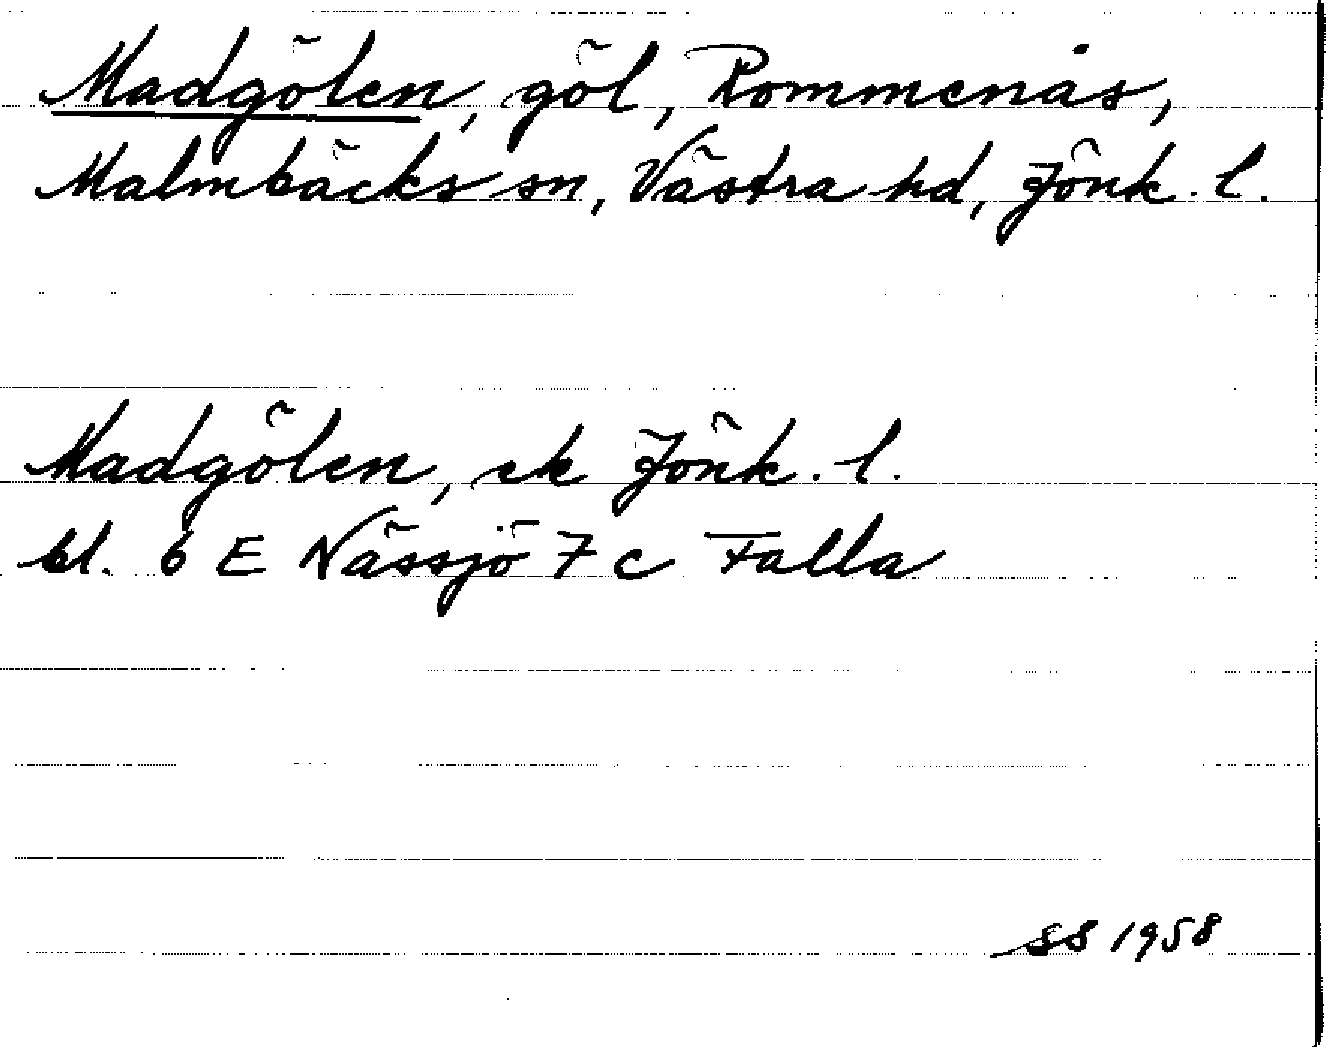 Madgölen, göl, Rommenås,
Malmbäcks sn, Västra hd, Jönk. l.
Madgölen, ek Jönk. l.
bl. 6 E Nässjö 7 c Falla
SS 1958